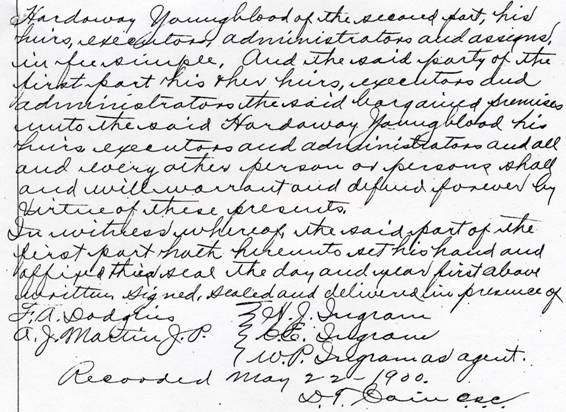 Hardaway Youngblood of the second part, his
heirs, executors, administrators and assigns,
in fee simple. And the said party of the
first part his & her heirs, executors and
administrators the said bargained premises
unto the said Hardaway Youngblood his
heirs executors and administrators and all
and every other person or persons shall
and will warrant and defend forever by
virtue of these presents.
In witness whereof, the said part of the
first part hath hereunto set his hand and
affixed seal the day and year first above
written, signed, sealed and delivered in presence of
F. A. Dodgins W. J. Ingram
A. J. Martin J. P. C. E. Ingram
W. P. Ingram as agent.
Recorded May 22 - 1900.
D. T. c s c